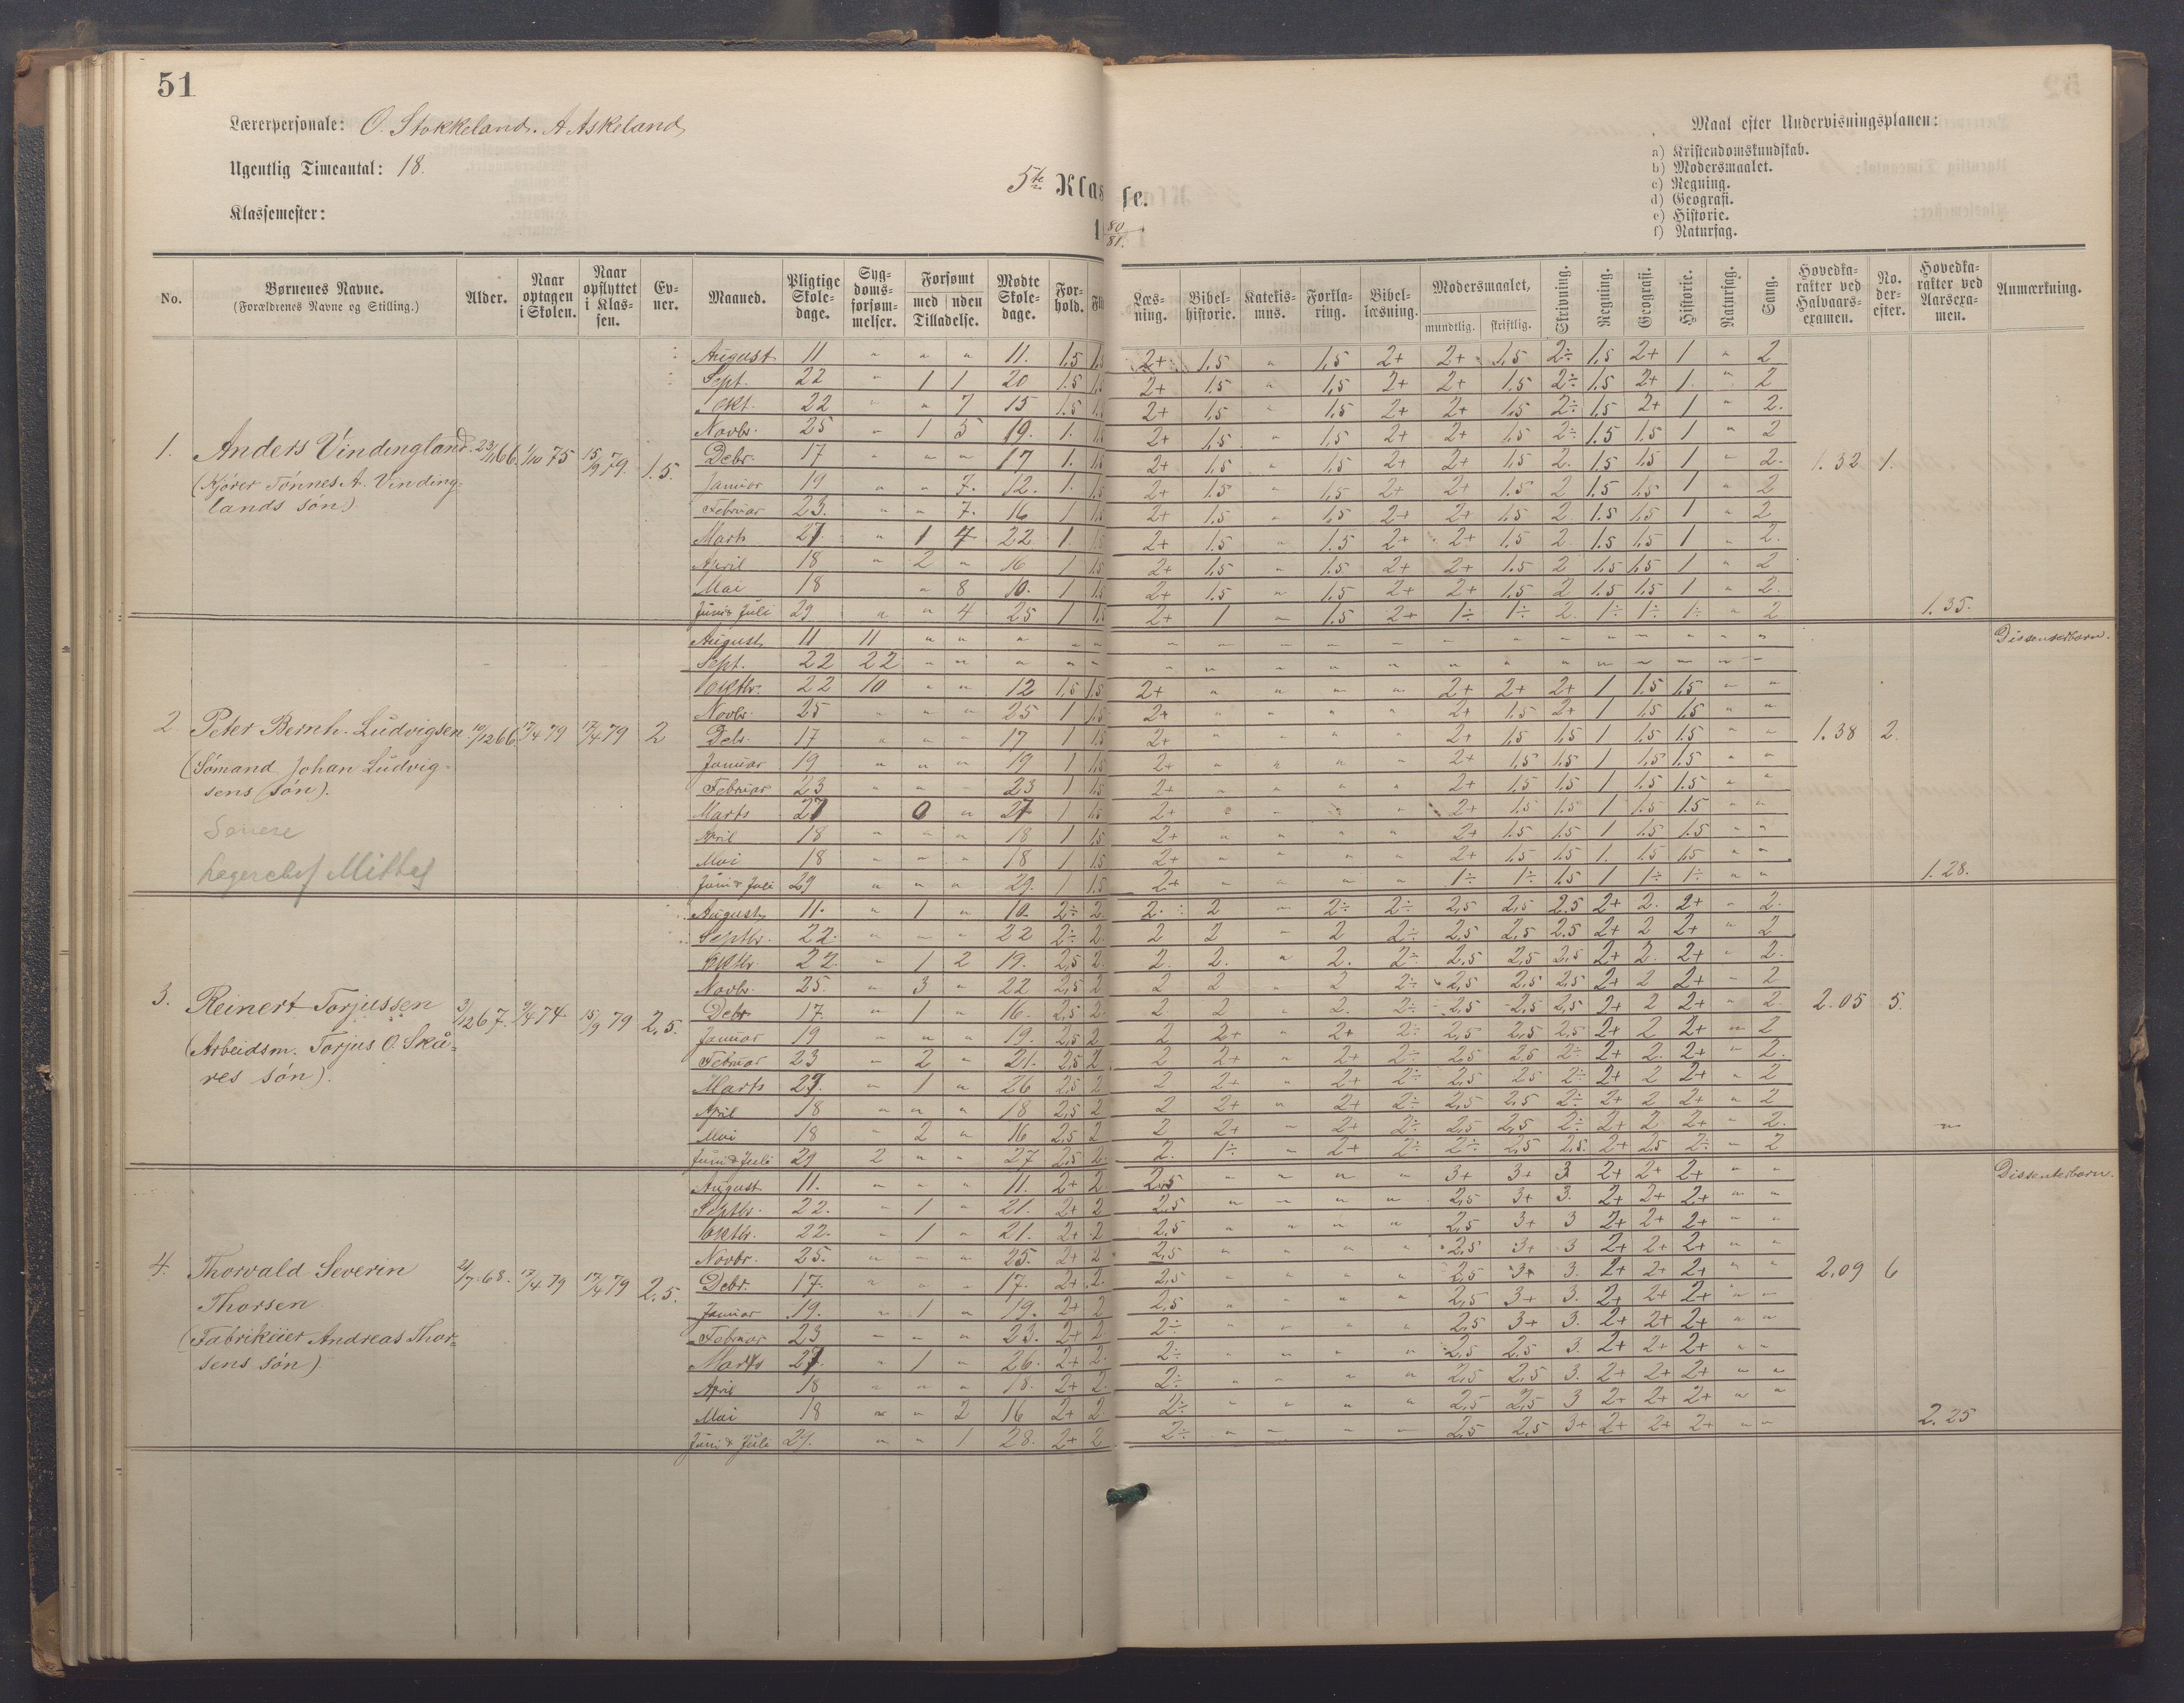 51
Lærerpersonale: O. Stokkeland. A Askeland
Ugentlig Timeantal: 18.
Klassemester:
5te Klasse.
1 80/81.
Maal efter Undervisningsplanen:
a) Kristendomskundskab.
b) Modersmaalet.
c) Regning.
d) Geografi.
e) Historie.
f) Naturfag.
No. | Børnenes Navne. (Forældrenes Navne og Stilling.) | Alder. | Naar optagen i Skolen. | Naar opflyttet i Klassen. | Evner. | Maaned. | Pligtige Skoledage. | Sygdomsforsømmelser. | Forsømt med Tilladelse. | uden Tilladelse. | Mødte Skoledage. | Forhold. | Fli | Læsning. | Bibelhistorie. | Katekismus. | Forklaring. | Bibellæsning. | Modersmaalet, mundtlig. | skriftlig. | Skrivning. | Regning. | Geografi. | Historie. | Naturfag. | Sang. | Hovedkarakter ved Halvaarsexamen. | No. derefter. | Hovedkarakter ved Aarsexamen. | Anmærkning.
1. Anders Vindingland. 23/1 66. 1/10 75 15/9 79. 1.5. 1.32 1. 1.35.
(Kjører Tønnes A. Vinding-
lands søn)
August 11 " " " 11. 1,5 1,5 2+ 1,5 " 1,5 2+ 2+ 1,5 2÷ 1,5 2+ 1 " 2
Sept. 22 " 1 1 20 1.5 1,5 2+ 1.5 " 1,5 2+ 2+ 1.5 2÷ 1.5 2+ 1. " 2
Okt. 22 " " 7 15 1.5 1,5 2+ 1.5 " 1.5 2+ 2+ 1.5 2÷ 1.5 2+ 1 " 2.
Novbr. 25 " 1 5 19. 1. 1,5 2+ 1.5 " 1,5 2+ 2+ 1.5 2÷ 1.5 1.5 1 " 2
Debr. 17 " " " 17 1. 1,5 2+ 1.5 " 1.5 2+ 2+ 1.5 2. 1.5 1.5 1 " 2.
Januar 19 " " 7. 12. 1. 1,5 2+ 1.5 " 1,5 2+ 2+ 1.5 2 1.5 1,5 1 " 2
Februar 23. " " 7. 16 1 1,5 2+ 1.5 " 1,5 2+ 2+ 1.5 2 1.5 1,5 1 " 2
Marts 27 " 1 4 22 1. 1.5 2+ 1.5 " 1.5 2+ 2+ 1.5 2 1.5 1.5 1 " 2.
April 18 " 2 " 16 1 1.5 2+ 1.5 " 1.5 2+ 2+ 1.5 2 1.5 1.5 1 " 2
Mai 18 " 8 10. 1 1.5 2+ 1.5 " 1.5 2+ 2+ 1.5 2 1.5 1.5 1 " 2.
Juni & Juli 29 " " 4 25 1 1,5 2+ 1 " 1.5 2+ 1÷ 1÷ 2. 1÷ 1÷ 1÷ " 2
2 Peter Bernh. Ludvigsen 12 66 17/4 79 17/4 79 2 1.38 2. 1.28. Dissenterbarn.
(Sømand Johan Ludvig-
sens søn).
Senere
Lagerchef
August 11 11 " " " " " " " " " " " " " " " " " "
Sept. 22 22 " " " " " " " " " " " " " " " " "
Oktbr. 22 10 " " 12 1,5 1.5 2+ " " " " 2+ 2+ 2+ 1 1.5 1.5 " "
Novbr. 25 " " " 25 1 1.5 2+ " " " " 2+ 1.5 2+ 1 1.5 1.5 " "
Debr. 17 " " " 17 1 1.5 2+ " " " " 2+ 1.5 1.5 1 1.5 1.5 " "
Januar 19 " " " 19 1 1,5 2+ " " " " 2+ 1.5 1.5 1 1.5 1.5 " "
Februar 23 " " " 23 1 1.5 2+ " " " " 2+ 1.5 1.5 1 1.5 1.5 " "
Marts 27 0 " 27 1 1.5 2+ " " " " 2+ 1.5 1.5 1 1.5 1.5 " "
April 18 " " " 18 1 1.5 2+ " " " " 2+ 1.5 1.5 1 1.5 1.5 " "
Mai 18 " " " 18 1 1.5 2+ " " " " 2+ 1.5 1.5 1. 1.5 1.5 " "
Juni & Juli 29 " " " 29. 1 1.5 2+ " " " " 1÷ 1÷ 1.5 1 1÷ 1÷ " "
3. Reinert Torjussen 3/12 67. 9/4 74 15/9 79 2,5. 2.05 5. "
(Arbeidsm. Torjus O. Skå-
res søn).
August 11. " 1 " 10. 2÷ 2. 2. 2 " 2÷ 2÷ 2,5 2,5 2.5 2+ 2. 2+ " 2.
Septbr. 22. " " " 22 2÷ 2. 2 2 " 2 2÷ 2,5 2,5 2.5 2+ 2 2+ " 2
Oktbr. 22. " 1 2 19. 2,5 2. 2. 2. " 2. 2÷ 2,5 2,5 2,5 2+ 2. 2+ " 2.
Novbr. 25. " 3 " 22 2,5 2 2 2 " 2 2÷ 2,5 2,5 2,5 2+ 2 2+ " 2
Debr 17. " 1 " 16. 2,5 2. 2 2 " 2. 2÷ 2,5 2,5 2,5 2+ 2 2+ " 2.
Januar 19 " " " 19. 2,5 2 2 2+ " 2+ 2÷ 2,5 2,5 2,5 2+ 2 2+ " 2
Februar 23 " 2 " 21. 2,5 2 2 2+ " 2+ 2÷ 2,5 2,5 2÷ 2+ 2. 2+ " 2.
Marts 27. " 1 " 26 2,5 2 2 2+ " 2+ 2÷ 2,5 2,5 2÷ 2+ 2 2+ " 2
April 18 " " " 18 2,5 2 2 2+ " 2+ 2÷ 2,5 2,5 2÷ 2+ 2 2+ " 2
Mai 18 " 2 " 16 2,5 2 2 2+ " 2+ 2÷ 2,5 2,5 2÷ 2+ 2 2+ " 2.
Juni & Juli 29 2 " " 27 2,5 2. 2. 1÷ " 2+ 2÷ 2÷ 2,5 2,5. 2+ 2,5 2÷ " 2
4. Thorvald Severin 21/7 68. 17/4 79 17/4 79 2.5. 2.09 6 2.25 Dissenterbarn.
Thorsen.
(Fabrikeier Andreas Thor-
sens søn)
August 11. " " " 11. 2+ 2. 2,5 " " " " 3+ 3+ 3 2+ 2+ 2+ " "
Septbr. 22. " 1 " 21. 2+ 2 2,5 " " " " 2,5 3+ 3. 2+ 2+ 2+ " "
Oktbr. 22. " 1 " 21. 2+ 2 2,5 " " " " 2,5 3+ 3 2+ 2+ 2+ " "
Novbr. 25. " " " 25. 2+ 2 2,5 " " " " 2,5 3+ 3 2+ 2+ 2+ " "
Debr. 17. " " " 17. 2+ 2. 2,5 " " " " 2,5 3+ 3. 2+ 2+ 2+ " "
Januar 19. " 1 " 19. 2+ 2 2,5 " " " " 2,5 3+ 3. 2+ 2+ 2+ " "
Februar 23 " " " 23. 2+ 2 2÷ " " " " 2,5 3+ 3. 2+ 2+ 2+ " "
Marts 27. " 1 " 26. 2+ 2. 2÷ " " " " 2,5 2.5 3. 2+ 2+ 2+ " "
April 18 " " " 18. 2+ 2. 2÷ " " " " 2,5 2,5 3. 2+ 2+ 2+ " "
Mai 18 " " 2 16 2+ 2 2÷ " " " " 2,5 2,5 3 2+ 2+ 2+ " "
Juni & Juli 29. " " 1 28. 2+ 2 2÷ " " " " 2,5 2,5 3+ 2+ 2+ 2+ " "